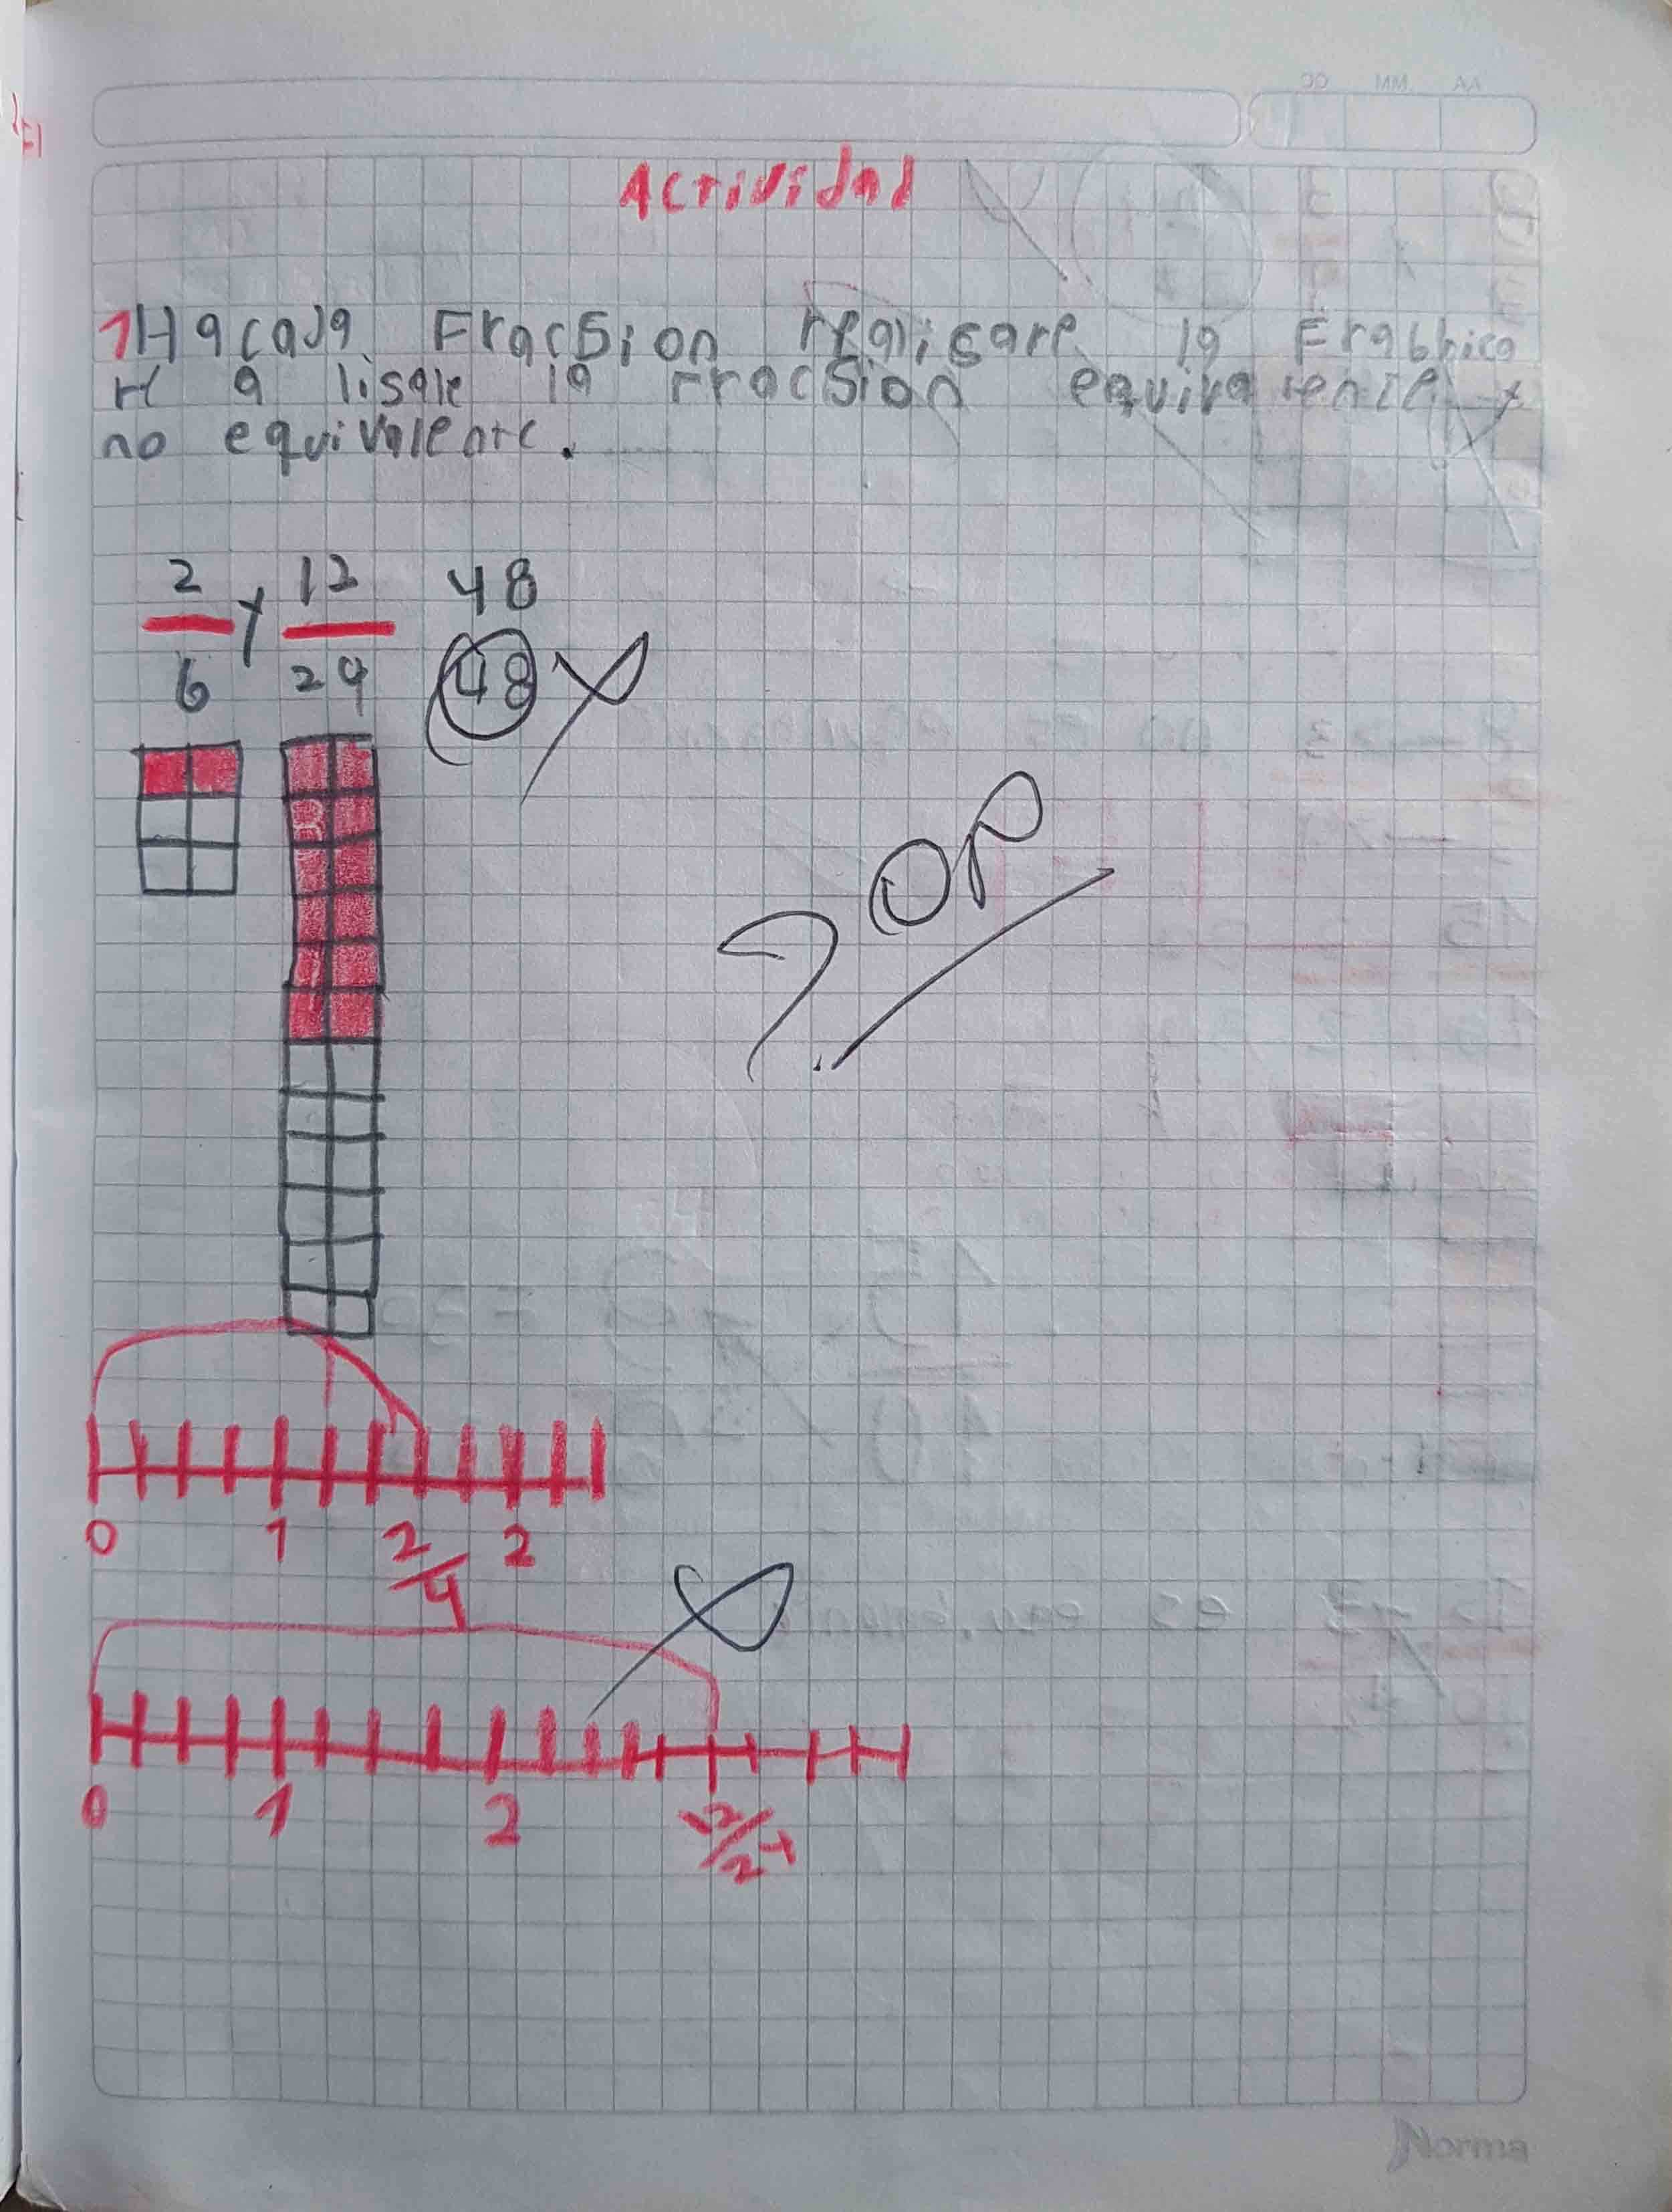 Actividad
1 H acada Fracsion realisare la Frabhica
H a lisale la Fracsion equivalente y
no equivalente.
2 y 12 48
6 24 48
0 1 2/4 2
0 1 2 12/24
Norma